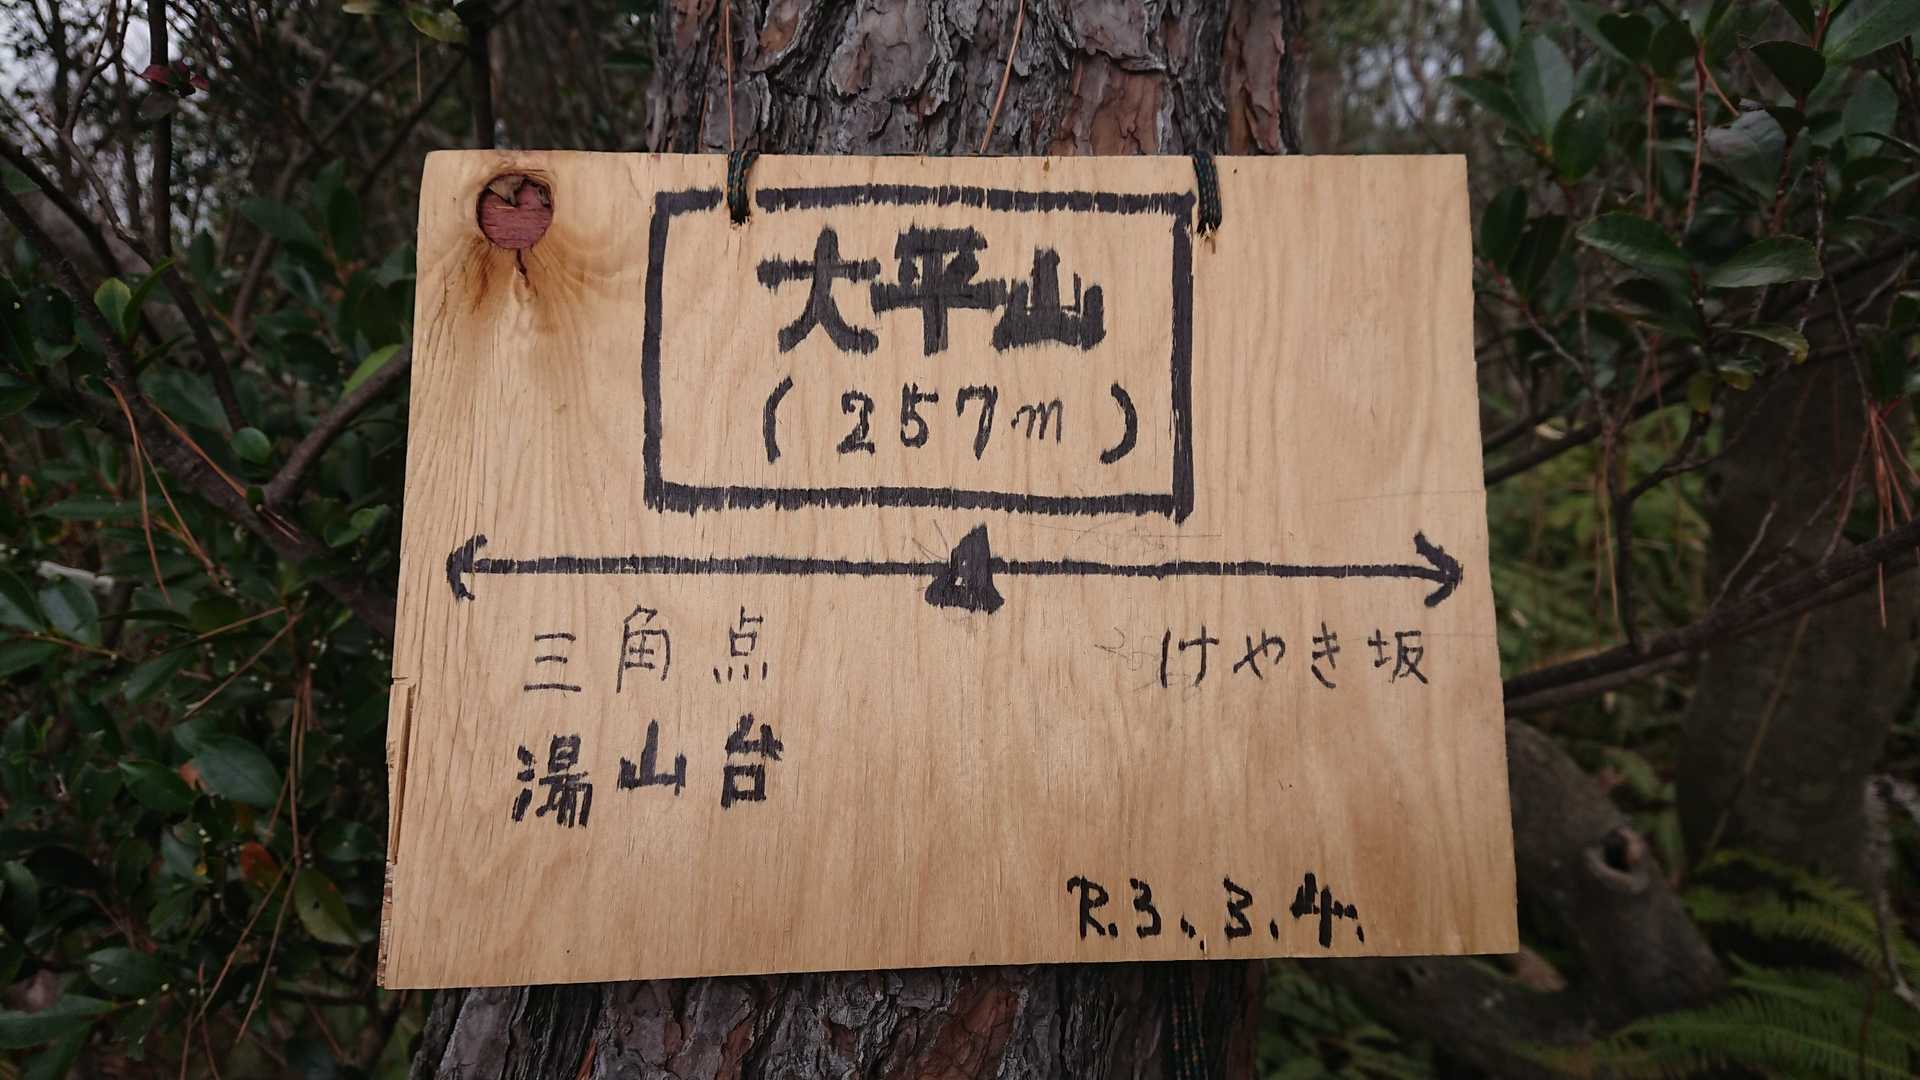 大平山
(257m)
三角点 けやき坂
湯山台
R.3.3.4.